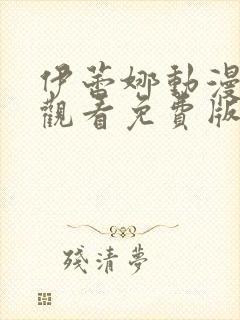 伊蕾娜動漫
觀看免費版
殘清夢